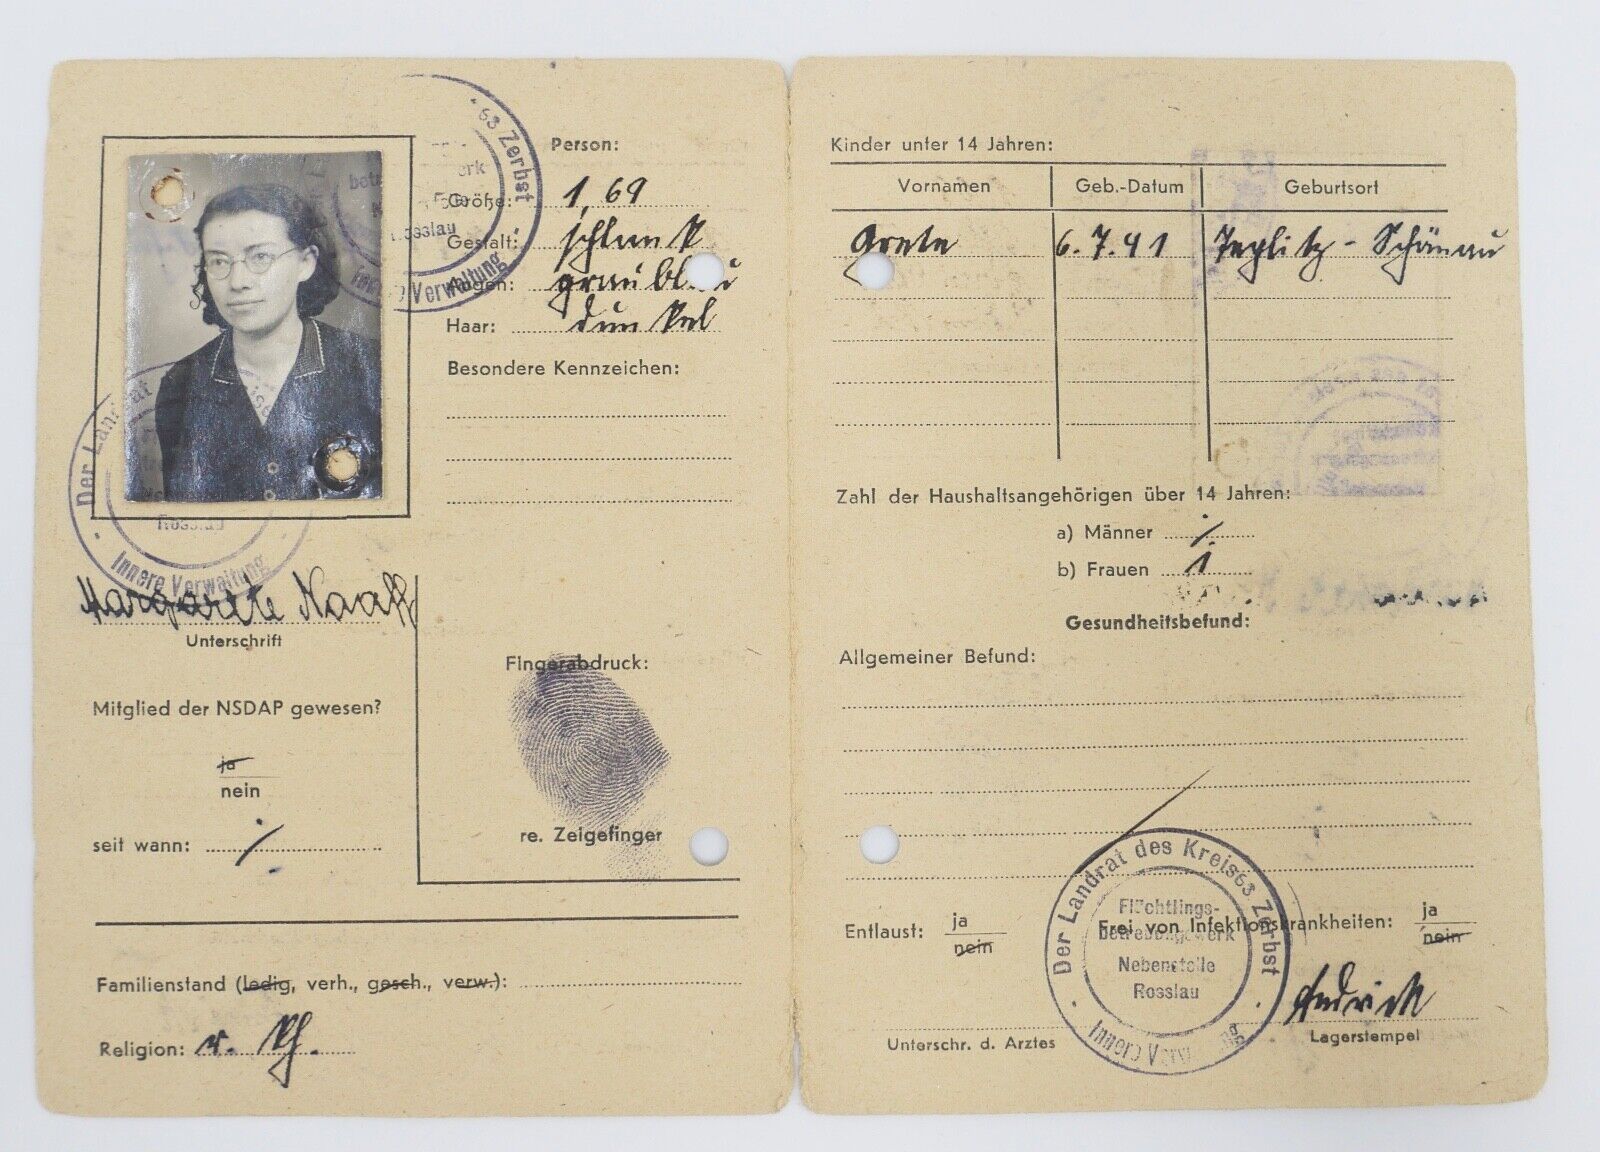 63 Zerbst
Rosslau
Verwaltung
Person:
Größe: 1,69
Gestalt: schlank
Augen: graublau
Haar: dunkel
Besondere Kennzeichen:
Der Landrat
Rosslau
Innere Verwaltung
Margarete Naaff
Unterschrift
Mitglied der NSDAP gewesen?
ja
nein
seit wann: ./.
Fingerabdruck:
re. Zeigefinger
Familienstand (ledig, verh., gesch., verw.):
Religion: r. kth.
Kinder unter 14 Jahren:
Vornamen Geb.-Datum Geburtsort
Grete 6.7.41 Teplitz-Schönau
Zahl der Haushaltsangehörigen über 14 Jahren:
a) Männer ./.
b) Frauen 1
Gesundheitsbefund:
Allgemeiner Befund:
Entlaust: ja
nein
Frei von Infektionskrankheiten: ja
nein
Der Landrat des Kreises Zerbst
63
Flüchtlings-
betreuungswerk
Nebenstelle
Rosslau
Unterschr. d. Arztes
Lagerstempel